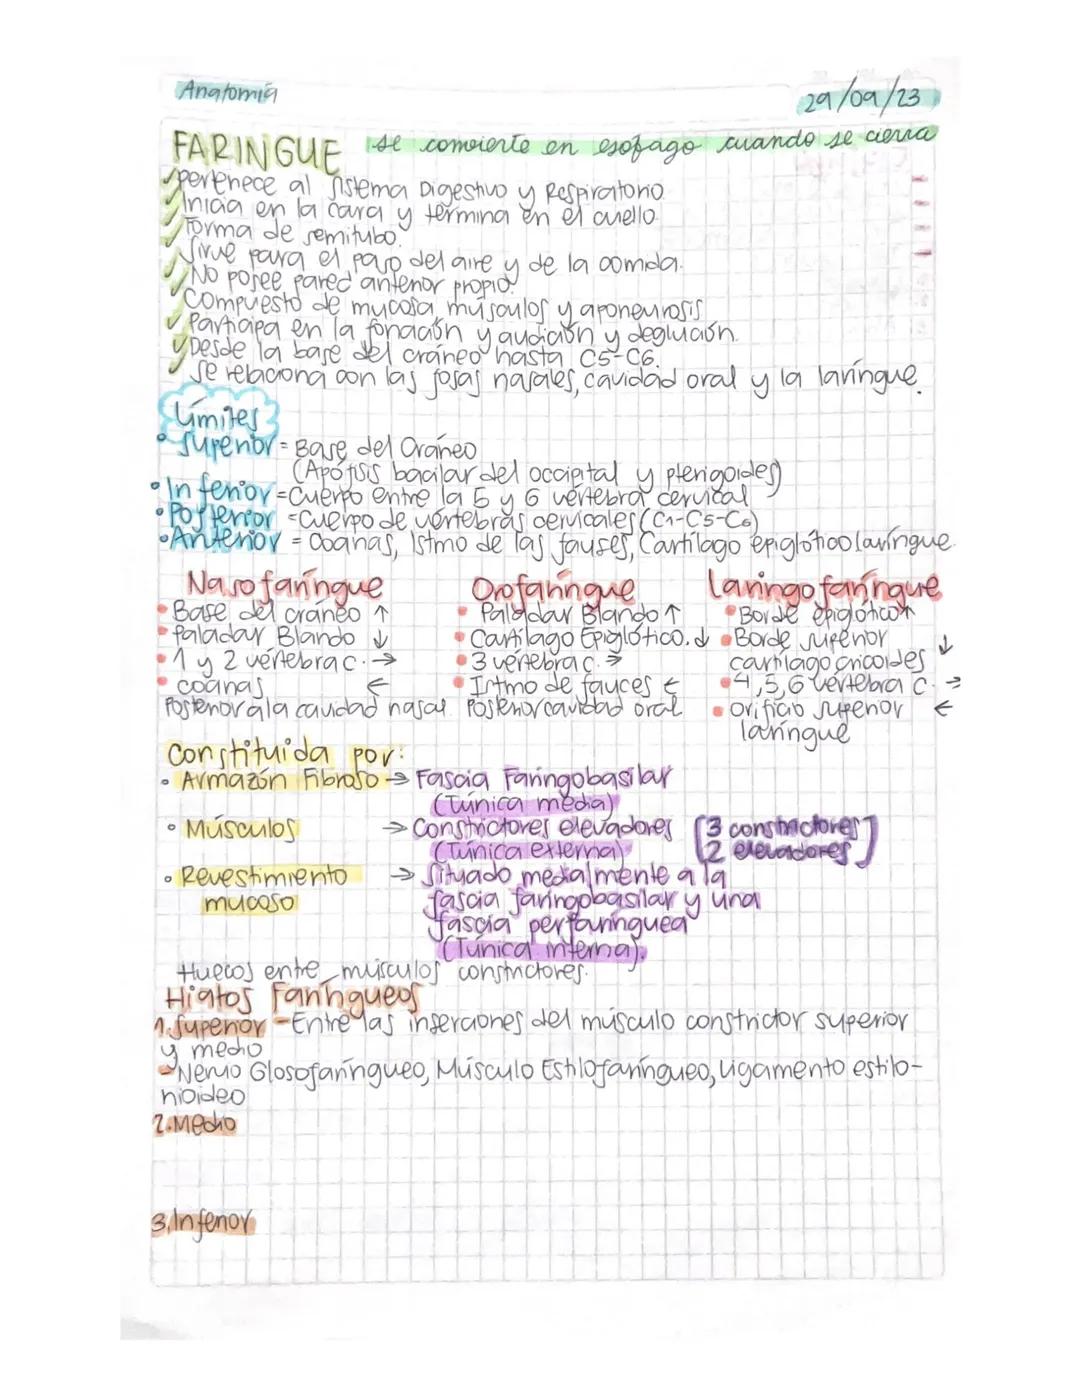 Anatomía
29/09/23
FARINGUE se convierte en esofago cuando se cierra
pertenece al sistema Digestivo y Respiratorio
Inicia en la cara y termina en el cuello
Forma de semitubo.
Sirve para el paso del aire y de la comida.
No posee pared anterior propia.
Compuesto de mucosa, músculos y aponeurosis
Participa en la fonación y audición y deglución.
Desde la base del cráneo hasta C5-C6.
Se relaciona con las fosas nasales, cavidad oral y la laringue.
Límites
• Superior = Base del Cráneo
(Apófisis bacilar del occipital y pterigoides)
• Inferior = Cuerpo entre la 5 y 6 vértebra cervical
• Posterior = Cuerpo de vértebras cervicales (C1-C5-C6)
• Anterior = Coanas, Istmo de las fauses, Cartílago epiglótico laringue.
Nasofaringue
• Base del cráneo ↑
• Paladar Blando ↓
• 1 y 2 vértebra c. →
• coanas ←
Posterior a la cavidad nasal
Orofaringue
• Paladar Blando ↑
• Cartílago Epiglótico. ↓
• 3 vértebra c. →
• Istmo de fauces ←
Posterior cavidad oral
Laringofaringue
• Borde epiglótico ↑
• Borde superior ↓
cartílago cricoides
• 4,5,6 vértebra c. →
• Orificio superior ←
laringue
Constituida por:
• Armazón Fibroso → Fascia Faringobasilar
(Túnica media)
• Músculos → Constrictores elevadores [3 constrictores
(Túnica externa) 2 elevadores]
• Revestimiento → Situado medialmente a la
mucoso fascia faringobasilar y una
fascia perfaringuea
(Túnica interna).
Huecos entre músculos constrictores.
Hiatos Faringueos
1. Superior - Entre las inserciones del músculo constrictor superior
y medio
- Nervio Glosofaringueo, Músculo Estilofaringueo, Ligamento estilo-
hioideo
2. Medio
3. Inferior